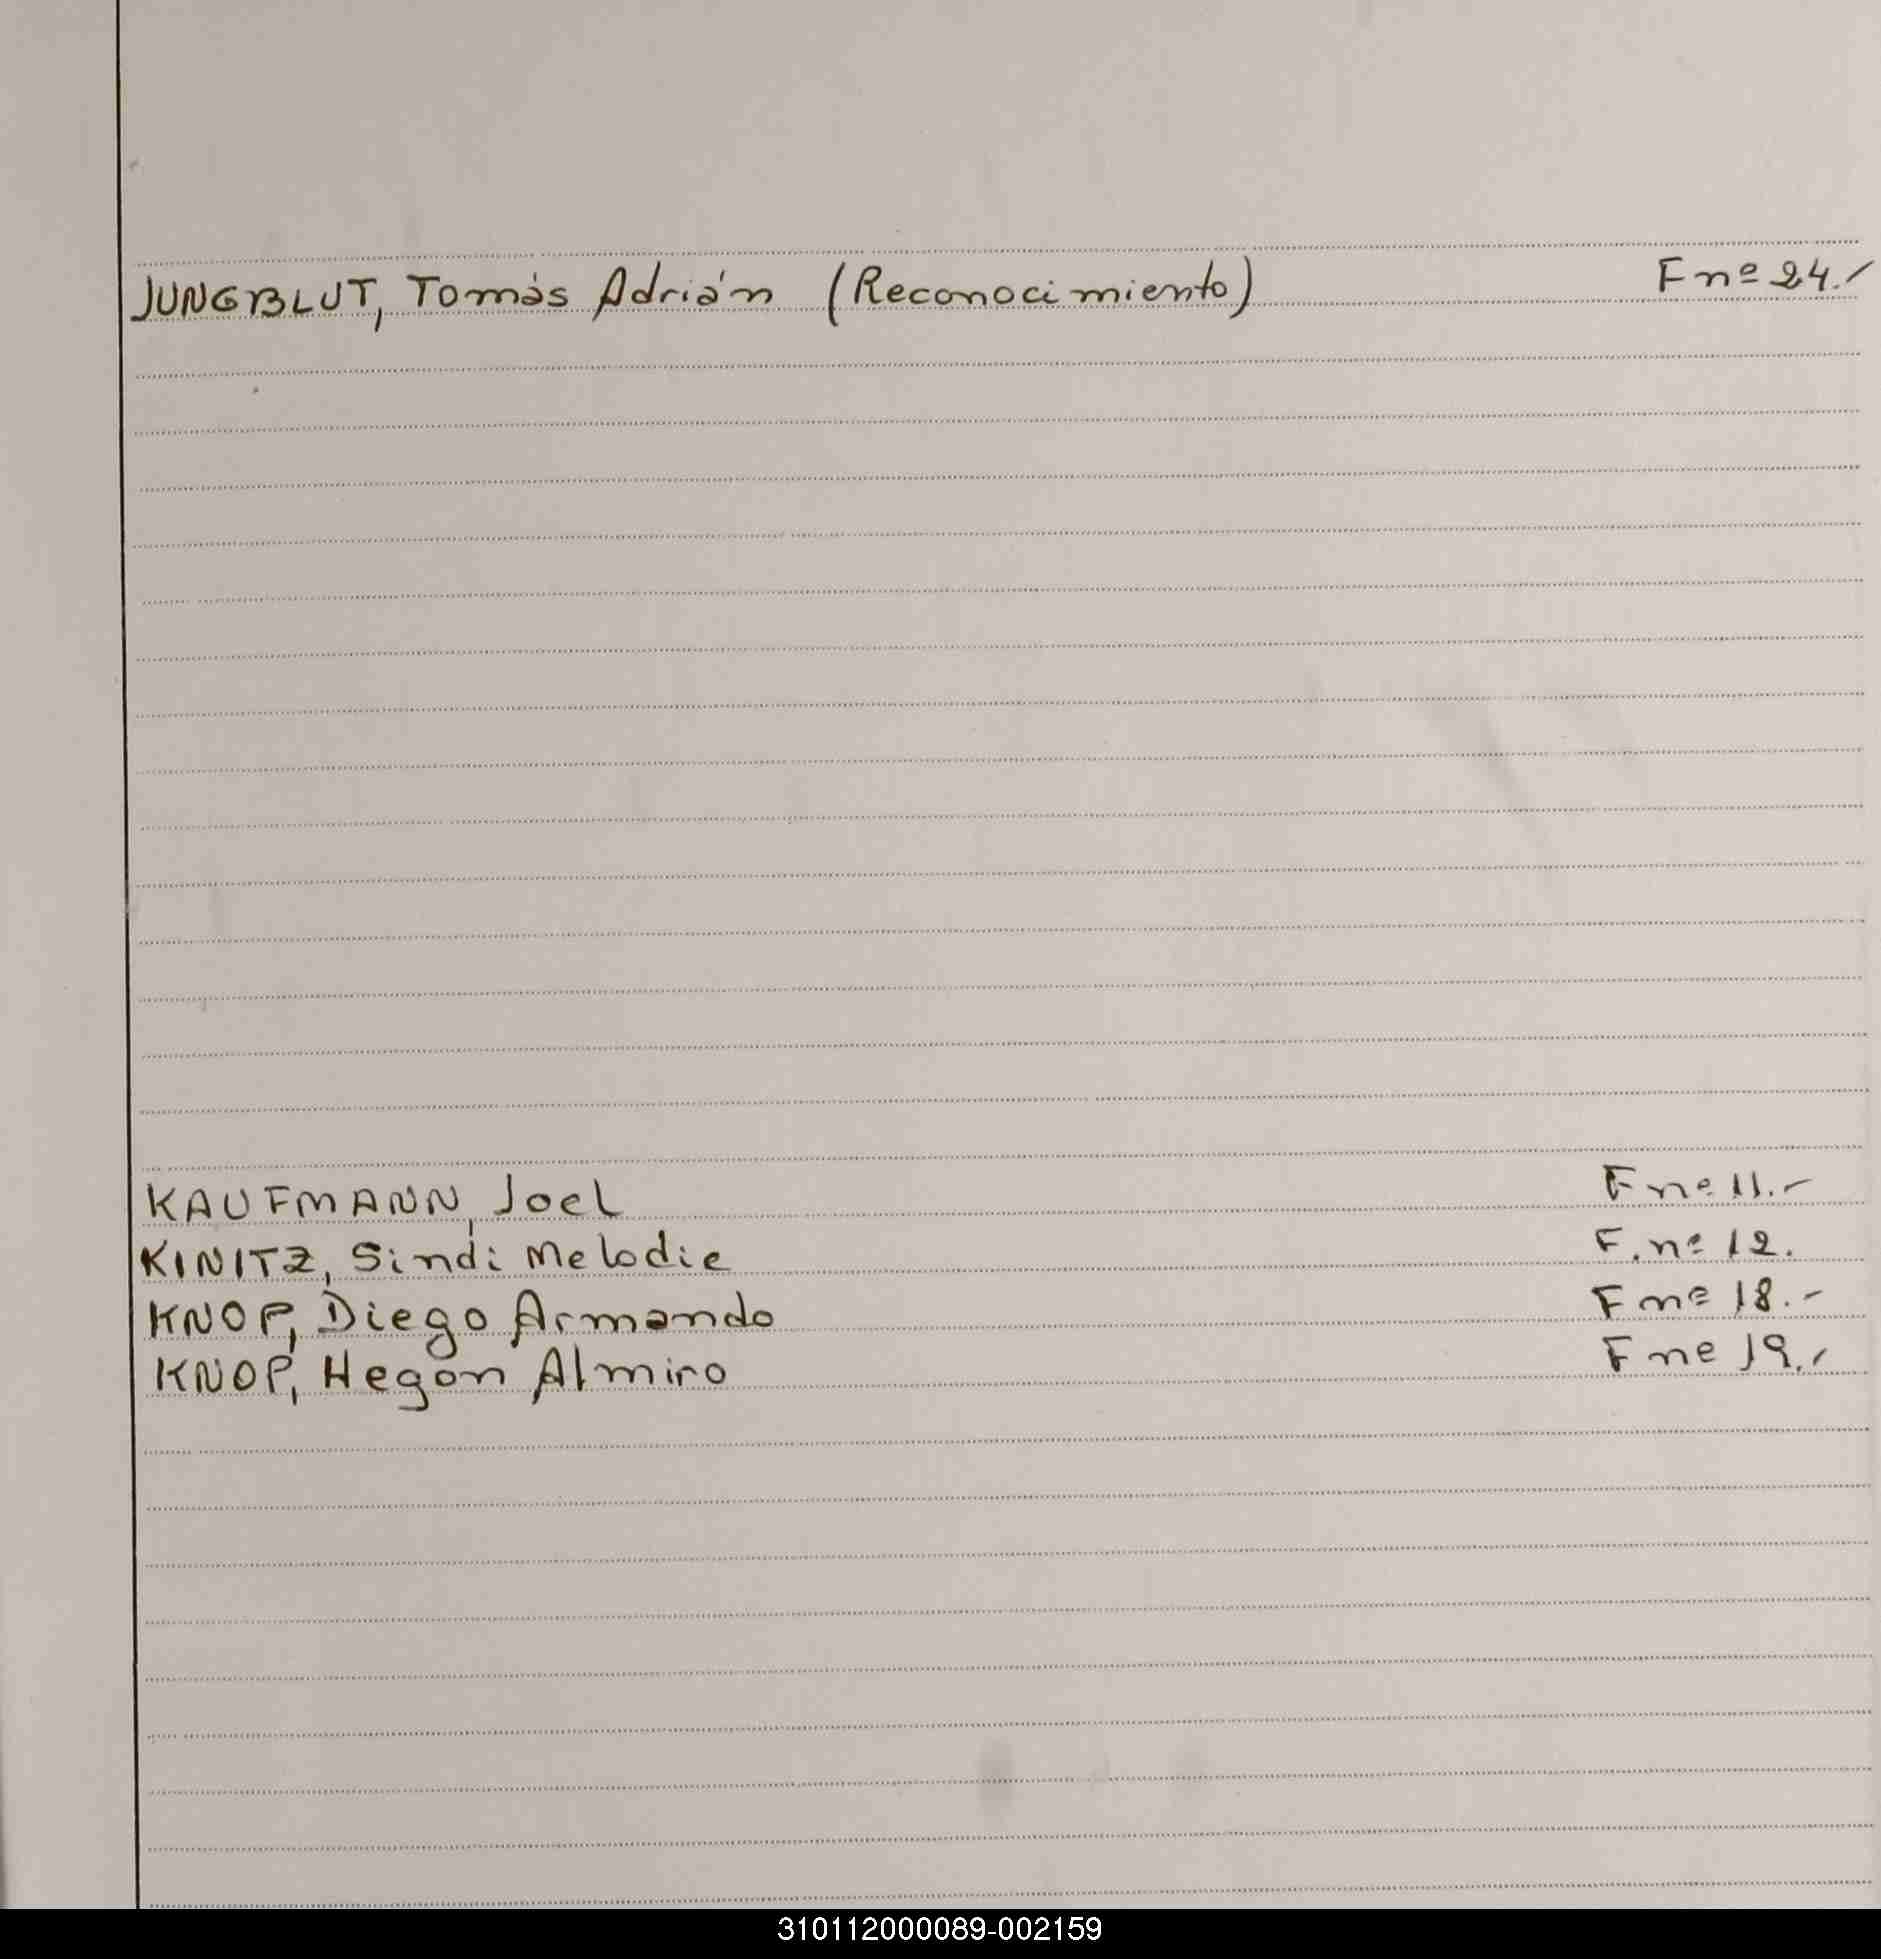 JUNGBLUT, Tomás Adrián (Reconocimiento) F nº 24.-
KAUFMANN, Joel F nº 11.-
KINITZ, Sindi Melodie F. nº 12.
KNOP, Diego Armando F nº 18.-
KNOP, Hegon Almiro F nº 19.-
310112000089-002159